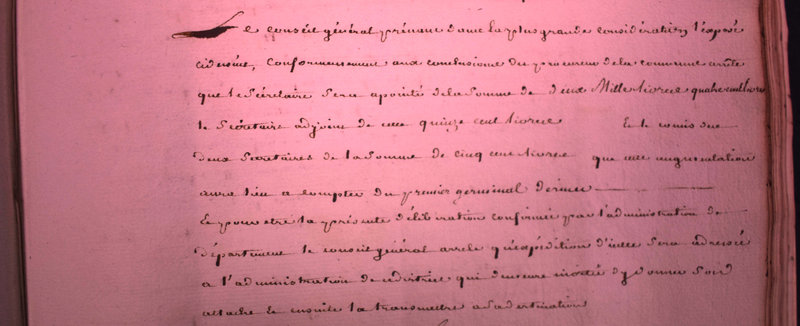 Le conseil général prénant dans la plus grande considération l'exposé
cidessus, conformement aux conclusions du procureur dela commune arrête
que le Sécrétaire Sera apointé dela Somme de deux Mille livres quatre cent livres
le Secrétaire adjoint de celle quinze cent livres Et le comis des
deux Secretaires de la Somme de cinq cent livres que cette augmentation
aura lieu a compter du premier germinal dernier
Et pour etre la présente délibération confirmée par l'administration de
département le conseil général arrete qu'expédition d'icelle Sera adressée
a l'administration de district qui demeure invitée d'y donner Son
attache et ensuite la transmettre a Sa destination